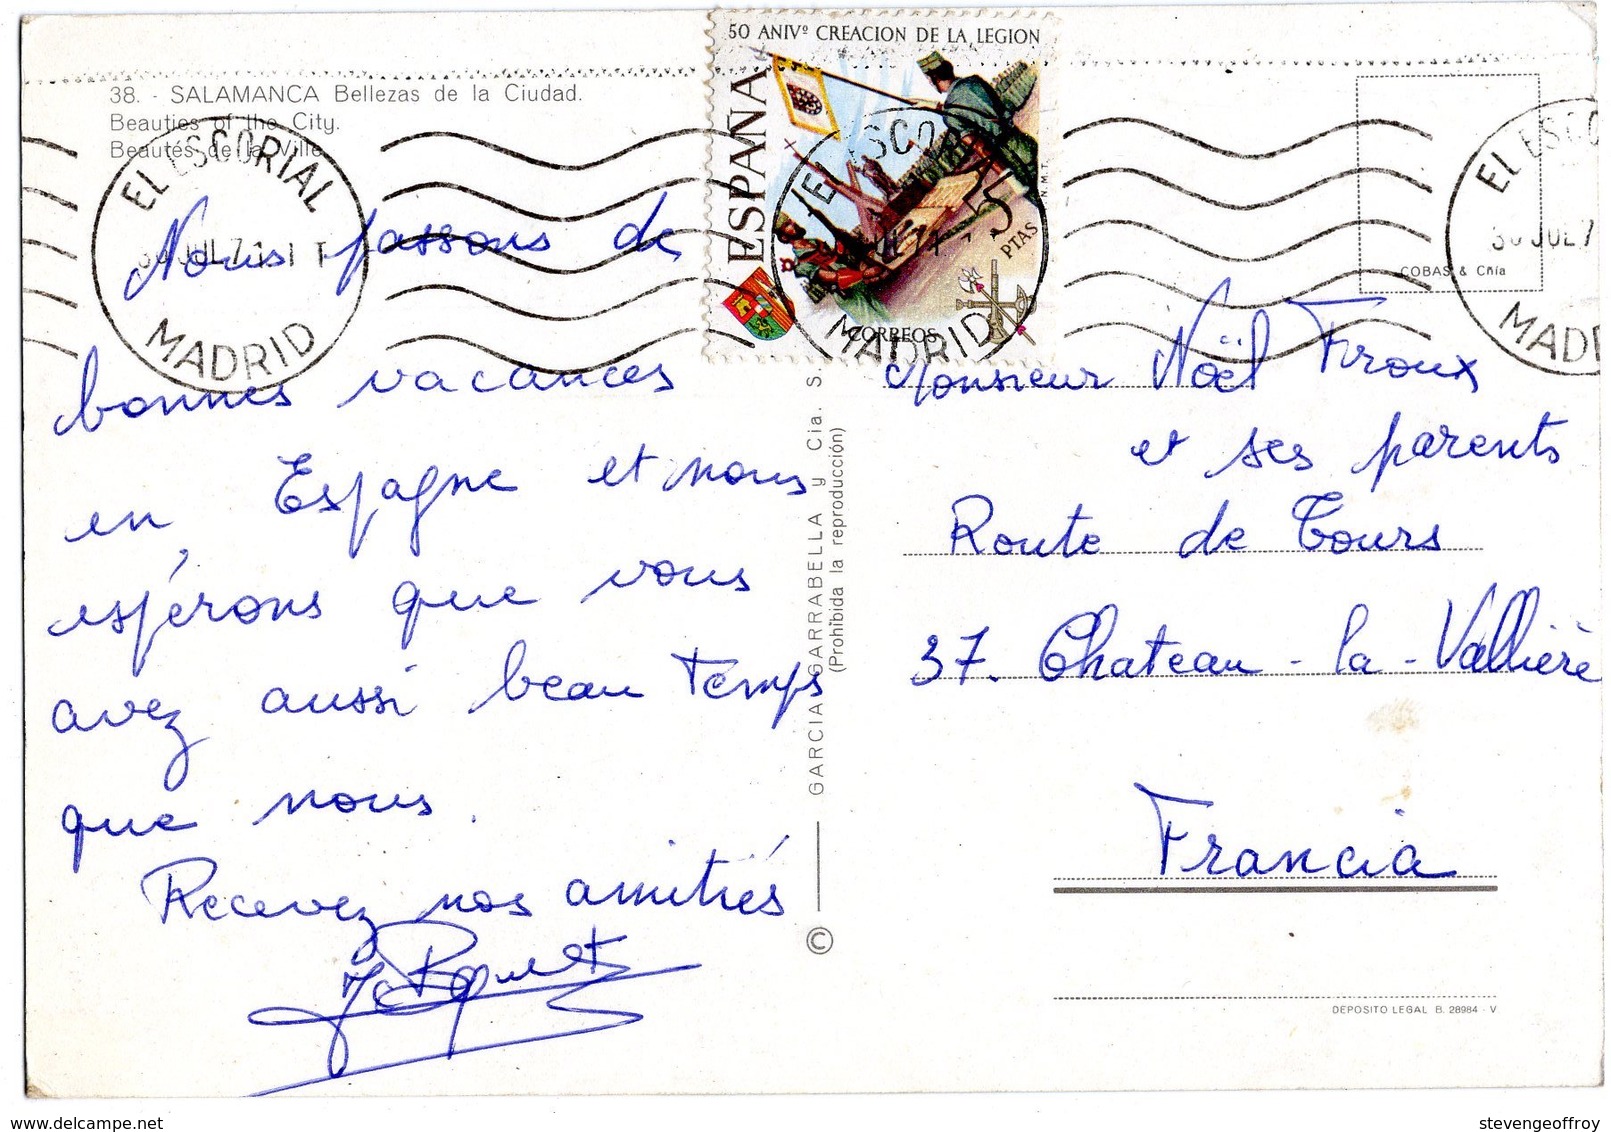 50 ANIVº CREACION DE LA LEGION
ESPAÑA
5 PTAS
N.M.T.
CORREOS
38. - SALAMANCA Bellezas de la Ciudad.
Beauties of the City.
Beautés de la Ville
EL ESCORIAL
30 JUL 71
MADRID
EL ESCORIAL
MADRID
EL ESCO
30 JUL 7
MADRI
COBAS & Cñía
Nous passons de
bonnes vacances
en Espagne et nous
espérons que vous
avez aussi beau temps
que nous.
Recevez nos amitiés
GARCIA GARRABELLA y Cia. S.
(Prohibida la reproducción)
©
Monsieur Noël Firoux
et ses parents
Route de Tours
37. Chateau-la-Vallière
Francia
DEPOSITO LEGAL B. 28984 - V
delcampe.net
stevengeoffroy